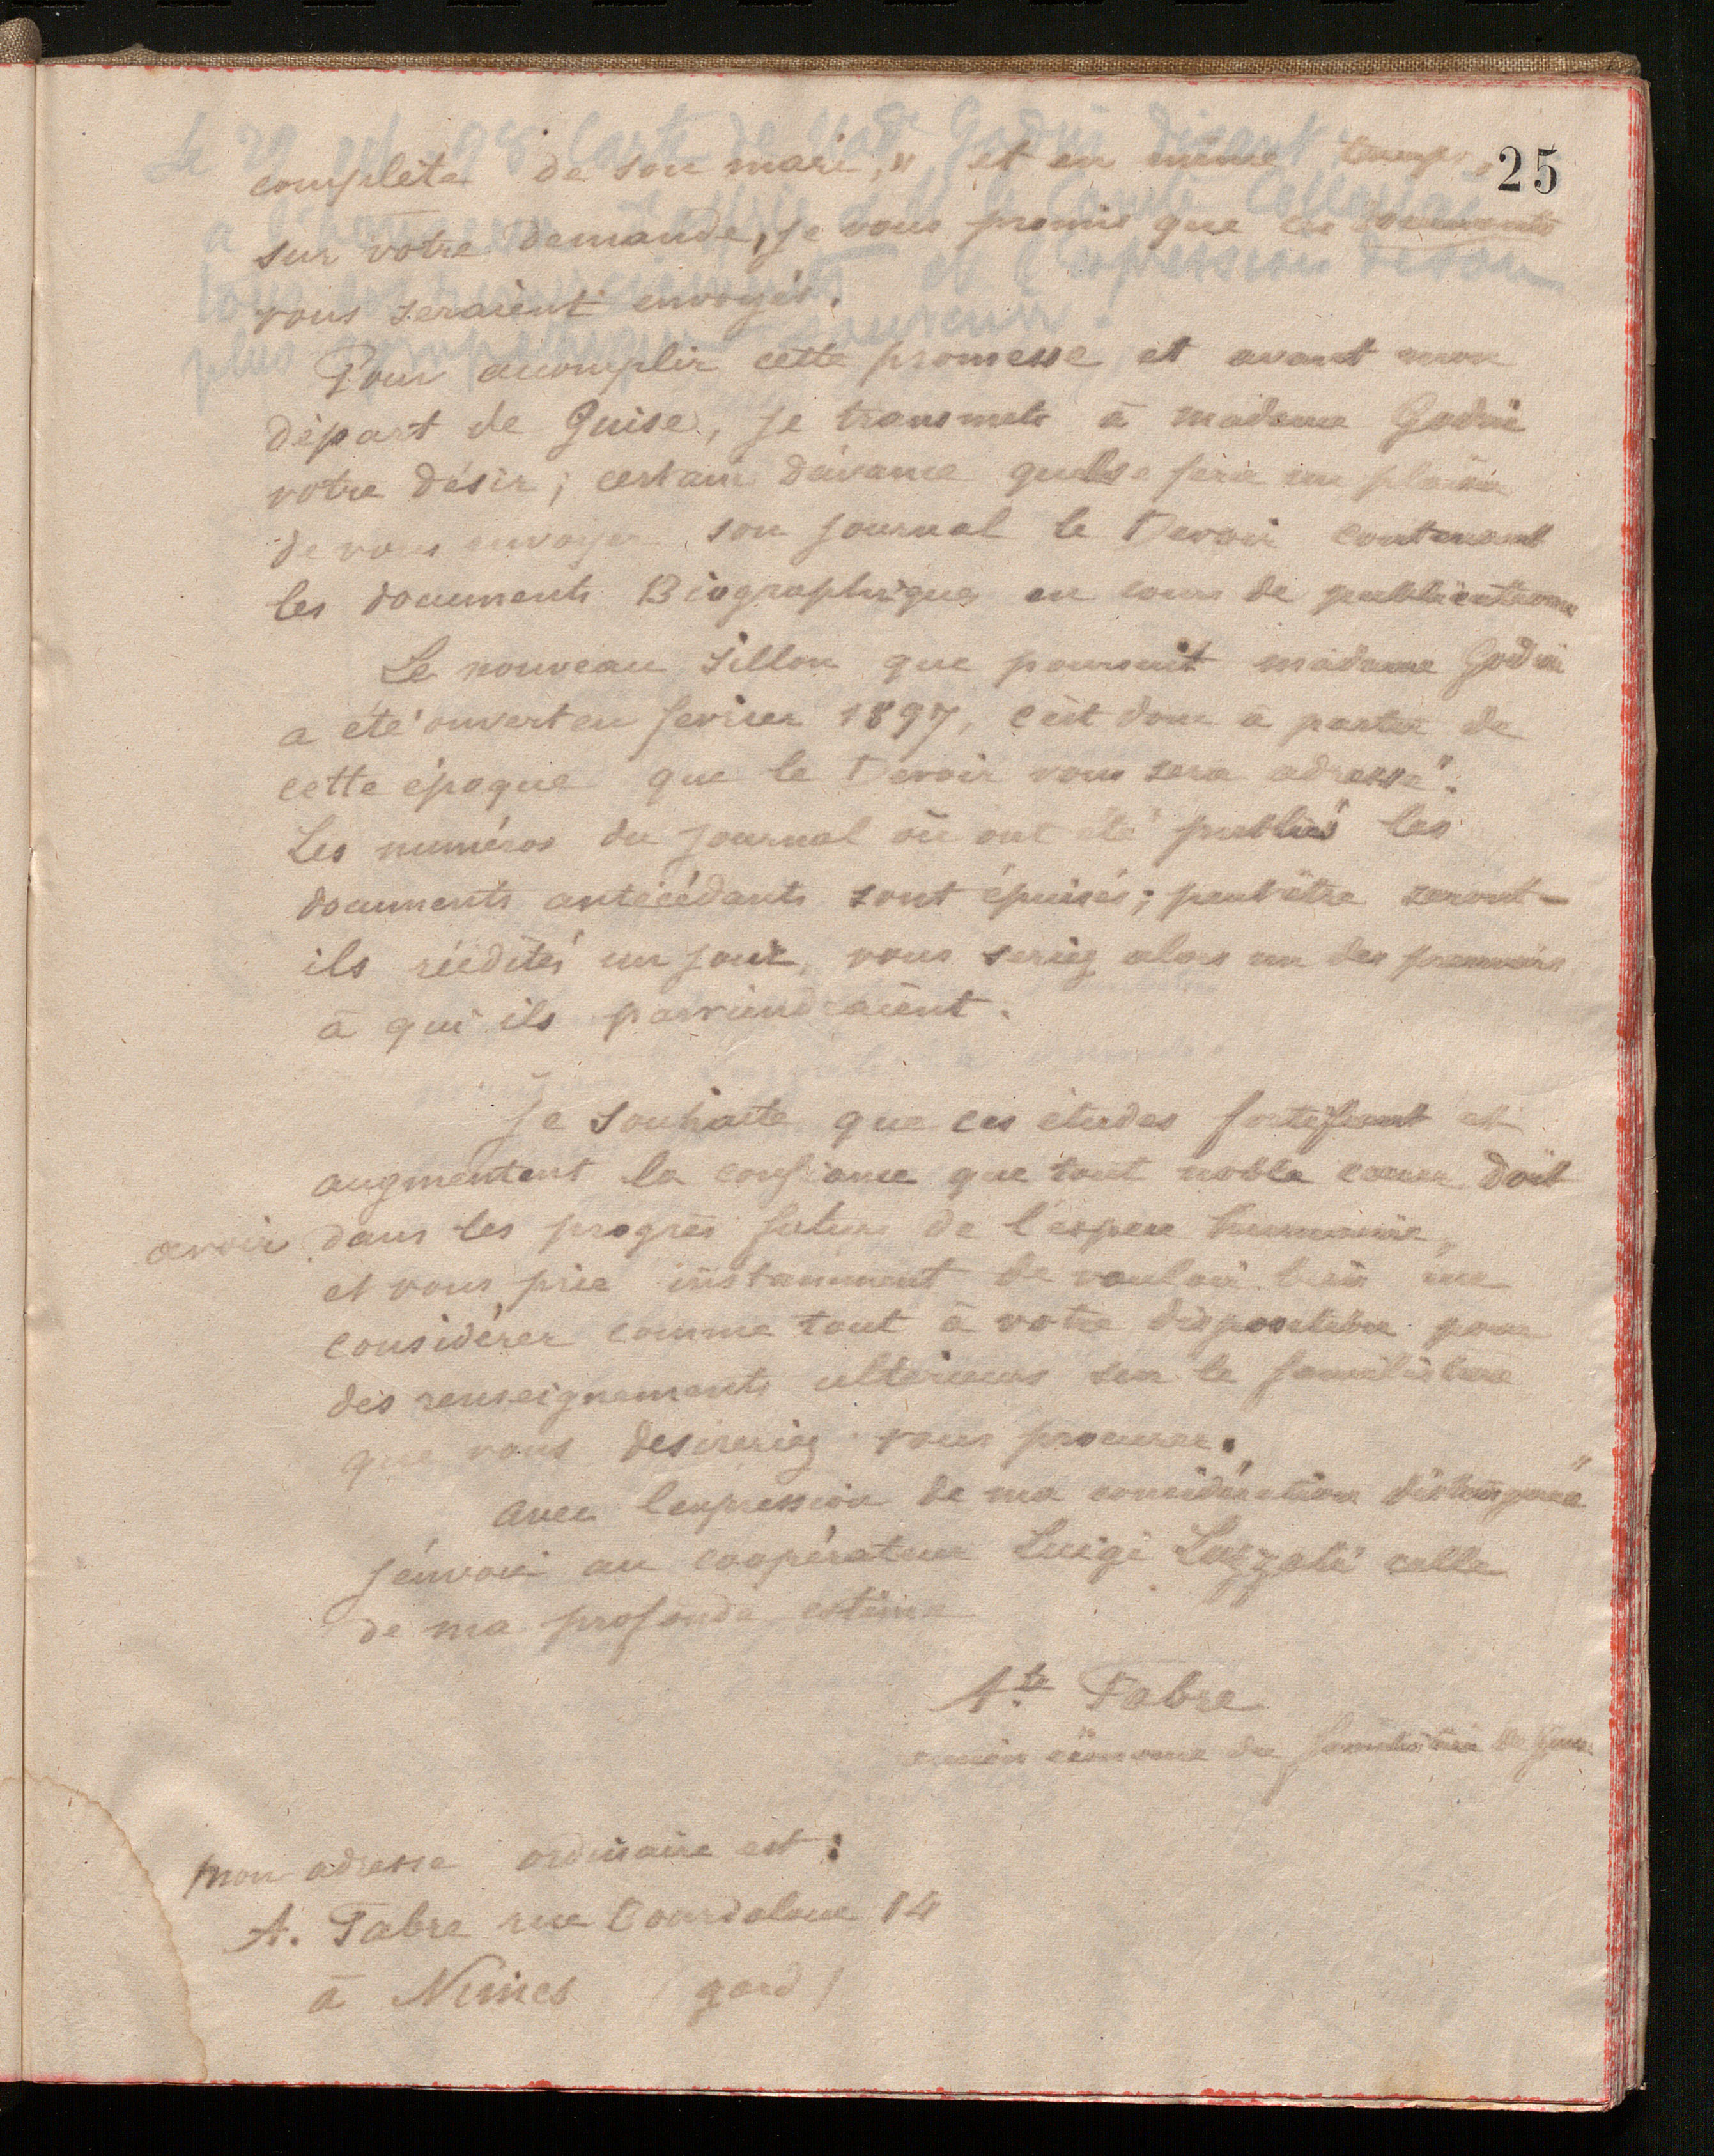 25
complète de son mari, " et en même temps,
sur votre demande, je vous promis que ces documents
vous seraient envoyés.
Pour accomplir cette promesse et avant mon
départ de Guise, je transmets à madame Godin
votre désir; certain d'avance qu'elle se fera un plaisir
de vous envoyer son journal le Devoir contenant
les documents Biographiques en cours de publication
Le nouveau sillon que poursuit madame Godin
a été ouvert en fevrier 1897, c'est donc à partir de
cette époque que le Devoir vous sera adressé.
Les numéros du journal où ont été publiés les
documents antécédants sont épuisés; peut être seront-
ils réédités un jour, vous seriez alors un des premiers
à qui ils parviendraient.
Je souhaite que ces études fortifient et
augmentent la confiance que tout noble coeur doit
avoir dans les progrès futurs de l'espece humaine,
et vous prie instamment de vouloir bien me
considérer comme tout à votre disposition pour
des renseignements ulterieurs sur le familistere
que vous desireriez vous procurer.
avec l'expression de ma considération distinguée
j'envoie au coopérateur Luigi Luzzati celle
de ma profonde estime
Ate Fabre
ancien économe du familistère de Guise
mon adresse ordinaire est :
A. Fabre rue Bourdaloue 14
à Nimes (gard)
Le 29 98 Carte de Made Godin disant